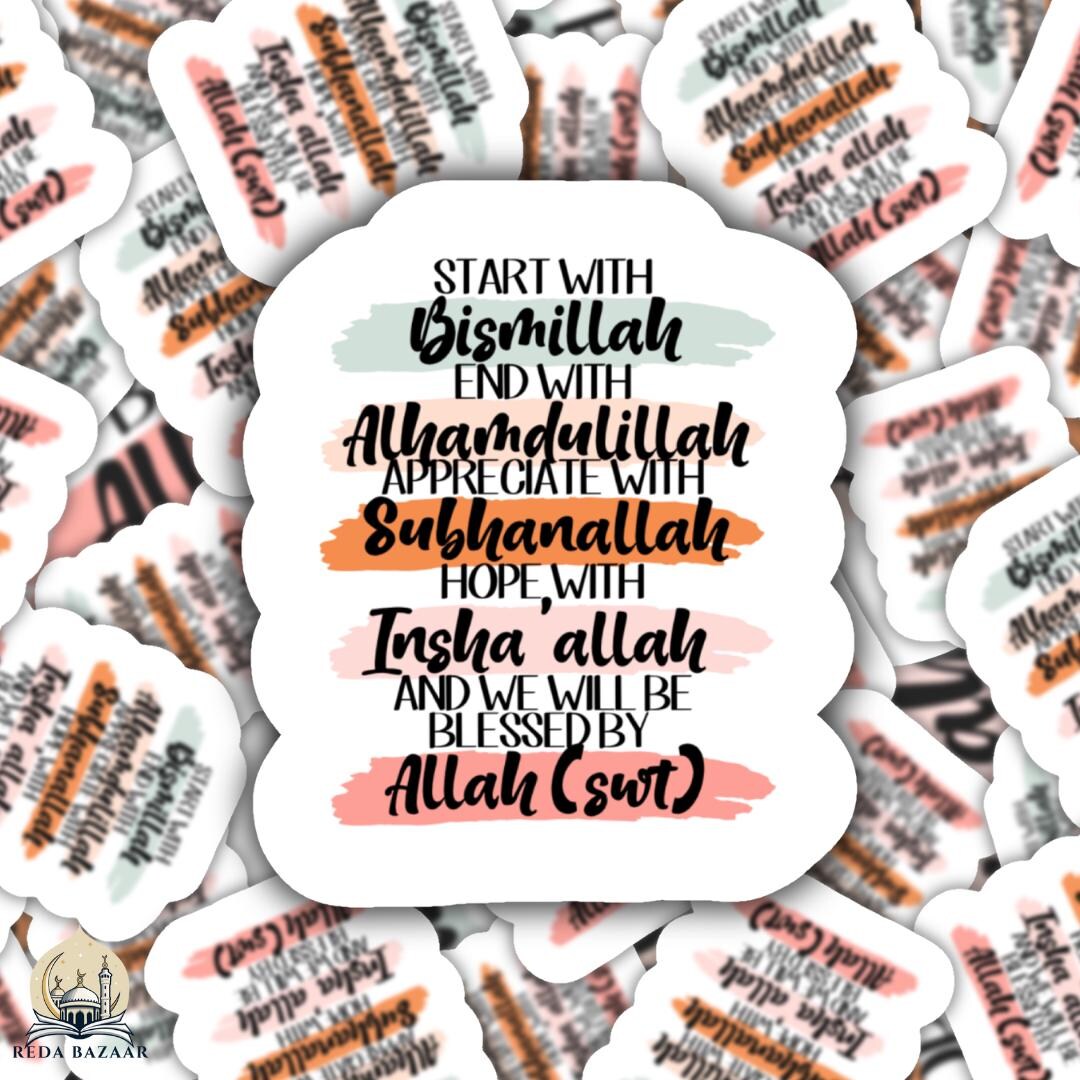 START WITH
Bismillah
END WITH
Alhamdulillah
APPRECIATE WITH
Subhanallah
HOPE WITH
Insha'allah
AND WE WILL BE
BLESSED BY
Allah (swt)
REDA BAZAAR